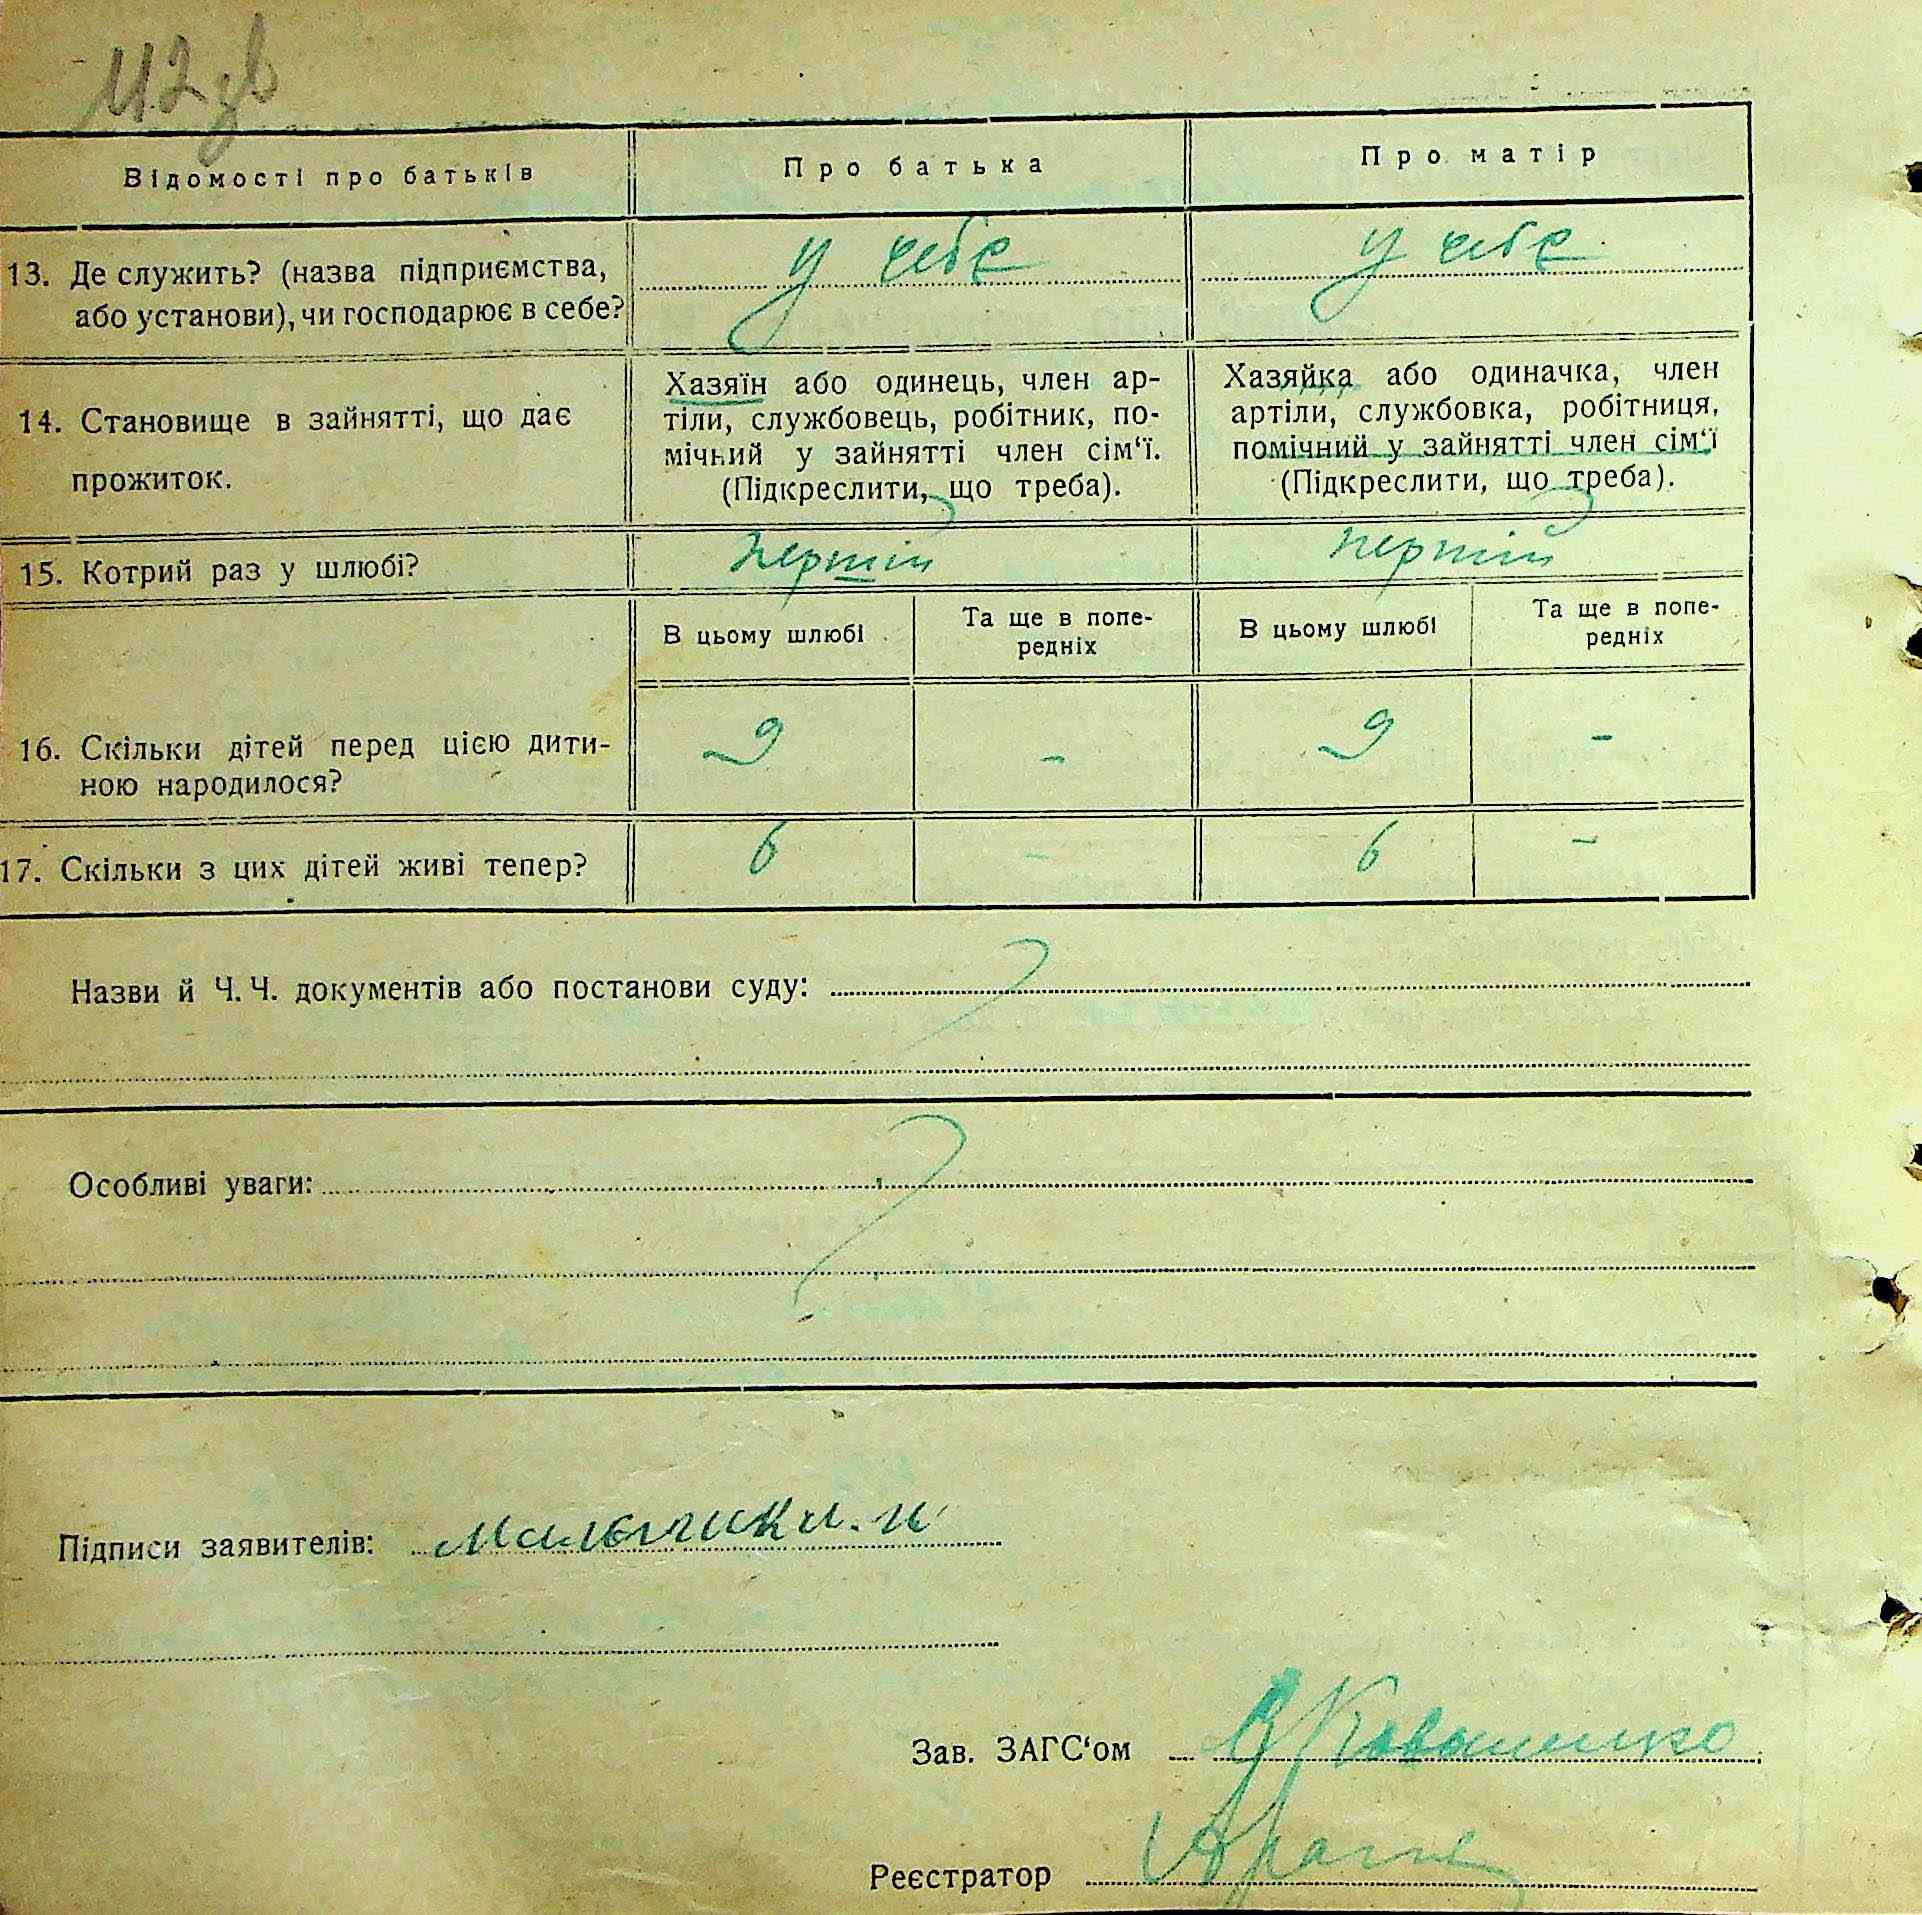 Відомості про батьків Про батька Про матір
13. Де служить? (назва підприємства, у себе у себе
або установи), чи господарює в себе?
14. Становище в зайнятті, що дає
прожиток.
Хазяїн або одинець, член ар-
тіли, службовець, робітник, по-
мічний у зайнятті член сім‘ї.
(Підкреслити, що треба).
Хазяйка або одиначка, член
артіли, службовка, робітниця,
помічний у зайнятті член сім‘ї
(Підкреслити, що треба).
15. Котрий раз у шлюбі? перший перший
В цьому шлюбі Та ще в попе-
редніх В цьому шлюбі Та ще в попе-
редніх
16. Скільки дітей перед цією дити-
ною народилося? 9 - 9 -
17. Скільки з цих дітей живі тепер? 6 - 6 -
Назви й Ч. Ч. документів або постанови суду:
Особливі уваги:
Підписи заявителів:
Зав. ЗАГС‘ом
Реєстратор